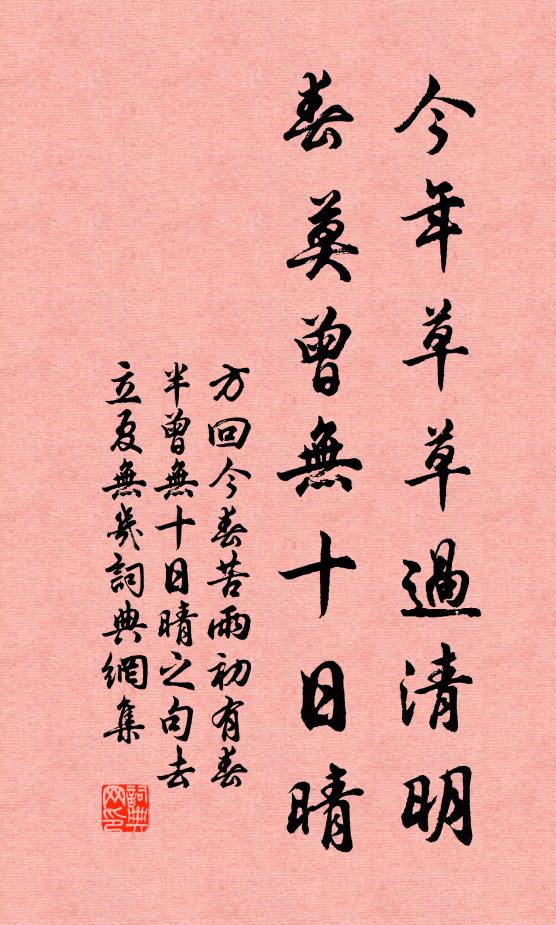 今年草草過清明
春莫曾無十日晴
方回今春苦雨初有春
半曾無十日晴之句去
立夏無幾詞典網集
詞典网印